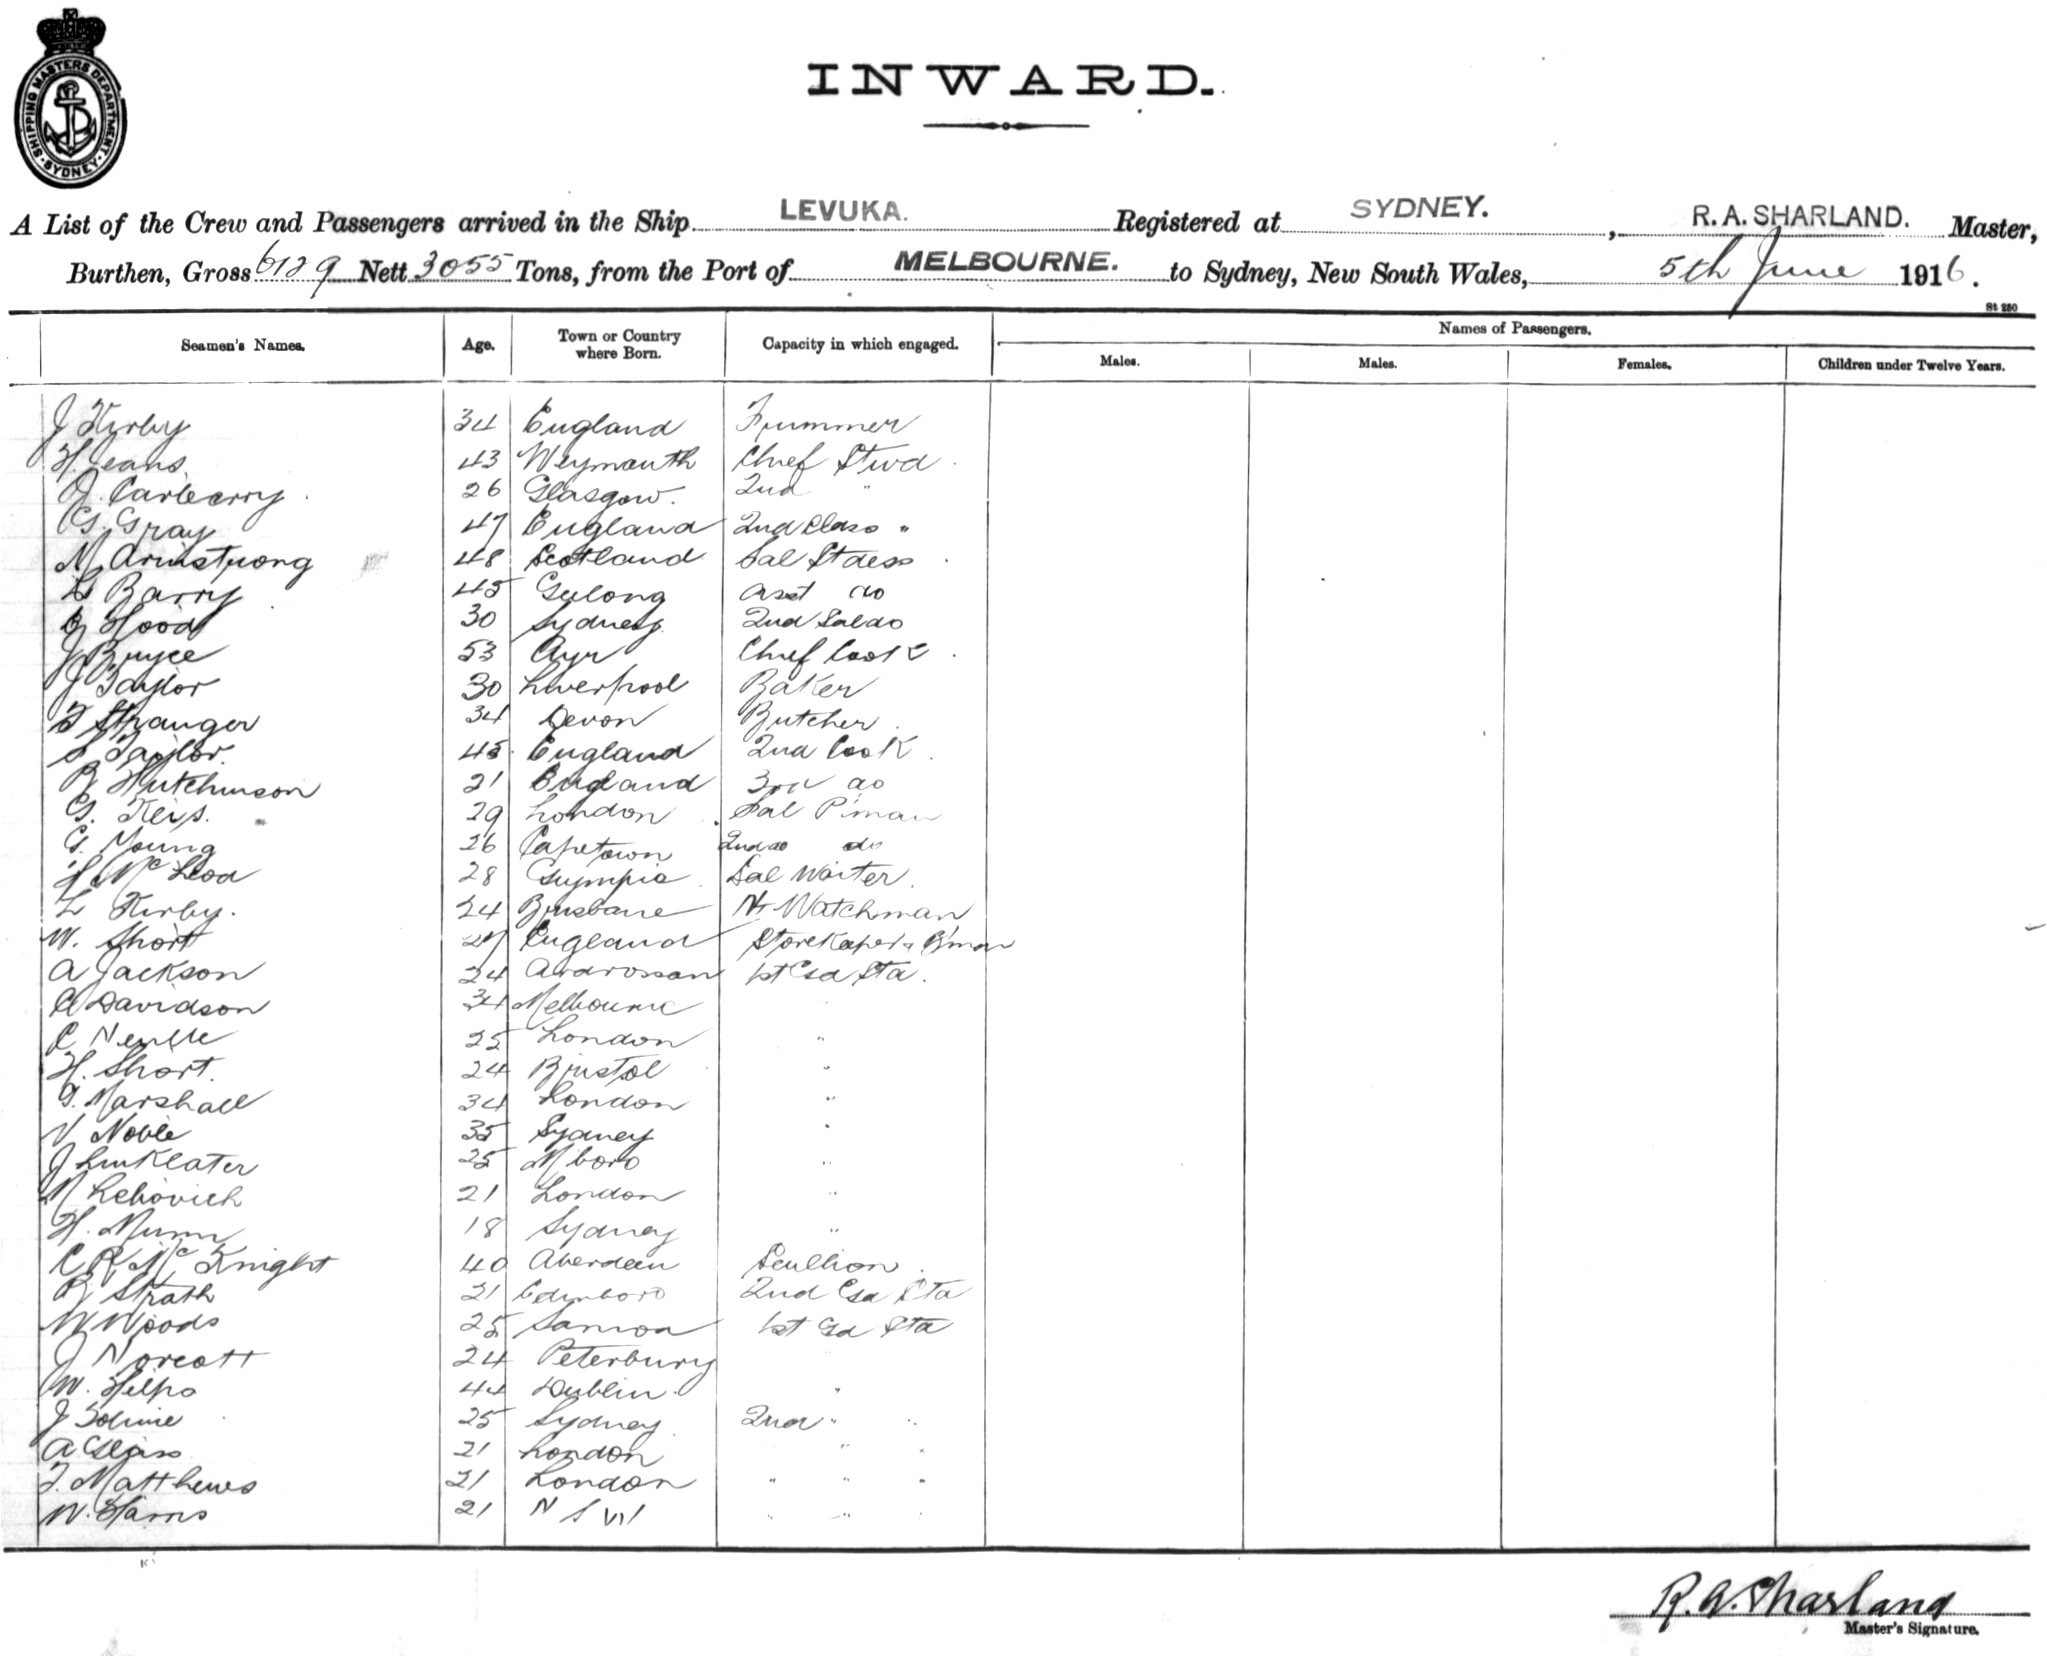 SHIPPING MASTERS DEPARTMENT. SYDNEY
INWARD.
A List of the Crew and Passengers arrived in the Ship LEVUKA. Registered at SYDNEY. , R. A. SHARLAND. Master,
Burthen, Gross 6129 Nett 3055 Tons, from the Port of MELBOURNE. to Sydney, New South Wales, 5th June 1916.
St 250
Seamen's Names. Age. Town or Country where Born. Capacity in which engaged. Names of Passengers.
Males. Males. Females. Children under Twelve Years.
J Kirby 34 England Trummer
H Jeans 43 Weymouth Chief Stwd
J. Carberry 26 Glasgow. 2nd "
G Gray 47 England 2nd Class "
M Armstrong 48 Scotland Sal Stdess
L Barry 45 Geelong Asst do
Hood 30 Sydney 2nd Sal do
J Bryce 53 Ayr Chief Cook
J Taylor 30 Liverpool Baker
F Stranger 34 Devon Butcher
S Taylor. 45 England 2nd Cook
R Hutchinson 21 England 3rd do
G. Keis. 29 London Sal P'man
G. Young 26 Capetown 2nd do do
H McLeod 28 Gympie Sal Waiter
L Kirby. 24 Brisbane Nt Watchman
W. Short 27 England Storekeeper & P'man
A Jackson 24 Ardrossan 1st Csd Sta.
A Davidson 34 Melbourne "
C Neville 25 London "
H. Short. 24 Bristol "
G. Marshall 34 London "
V Noble 35 Sydney "
J Linklater 25 M'boro "
M Lebovich 21 London "
H. Munn 18 Sydney "
C R McKnight 40 Aberdeen Scullion
R Strath 21 Edinboro 2nd Csd Sta
W Woods 25 Samoa 1st Csd Sta
J Norcott 24 Peterbury
W. Helps 44 Dublin. "
J 25 Sydney 2nd " "
A Glass 21 London " "
F. Matthews 21 London " " "
W. Harris 21 N S W " " "
R. A. Sharland
Master's Signature.